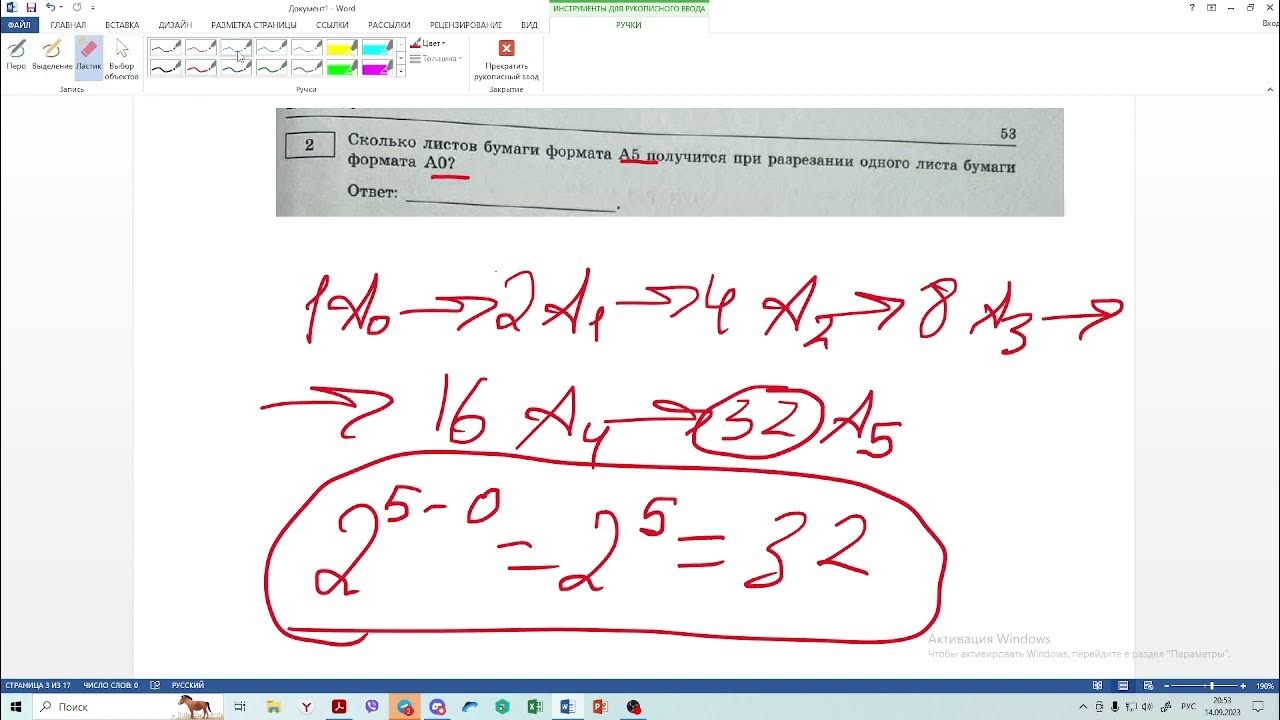 Документ1 - Word
ИНСТРУМЕНТЫ ДЛЯ РУКОПИСНОГО ВВОДА
ФАЙЛ ГЛАВНАЯ ВСТАВКА ДИЗАЙН РАЗМЕТКА СТРАНИЦЫ ССЫЛКИ РАССЫЛКИ РЕЦЕНЗИРОВАНИЕ ВИД РУЧКИ
Вход
Перо Выделение Ластик Выбор объектов
Цвет
Толщина
Прекратить рукописный ввод
Запись Ручки Закрытие
53
2 Сколько листов бумаги формата А5 получится при разрезании одного листа бумаги
формата А0?
Ответ: .
1A0 → 2A1 → 4 A2 → 8 A3 →
→ 16 A4 → 32 A5
2^5-0 = 2^5 = 32
Активация Windows
Чтобы активировать Windows, перейдите в раздел "Параметры".
СТРАНИЦА 3 ИЗ 17 ЧИСЛО СЛОВ: 0 РУССКИЙ 190%
Поиск
РУС 20:53
14.09.2023